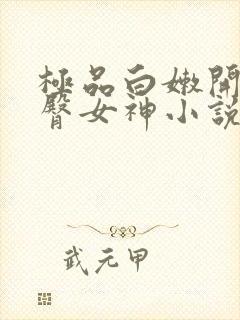 極品白嫩開
臀女神小說
武元甲